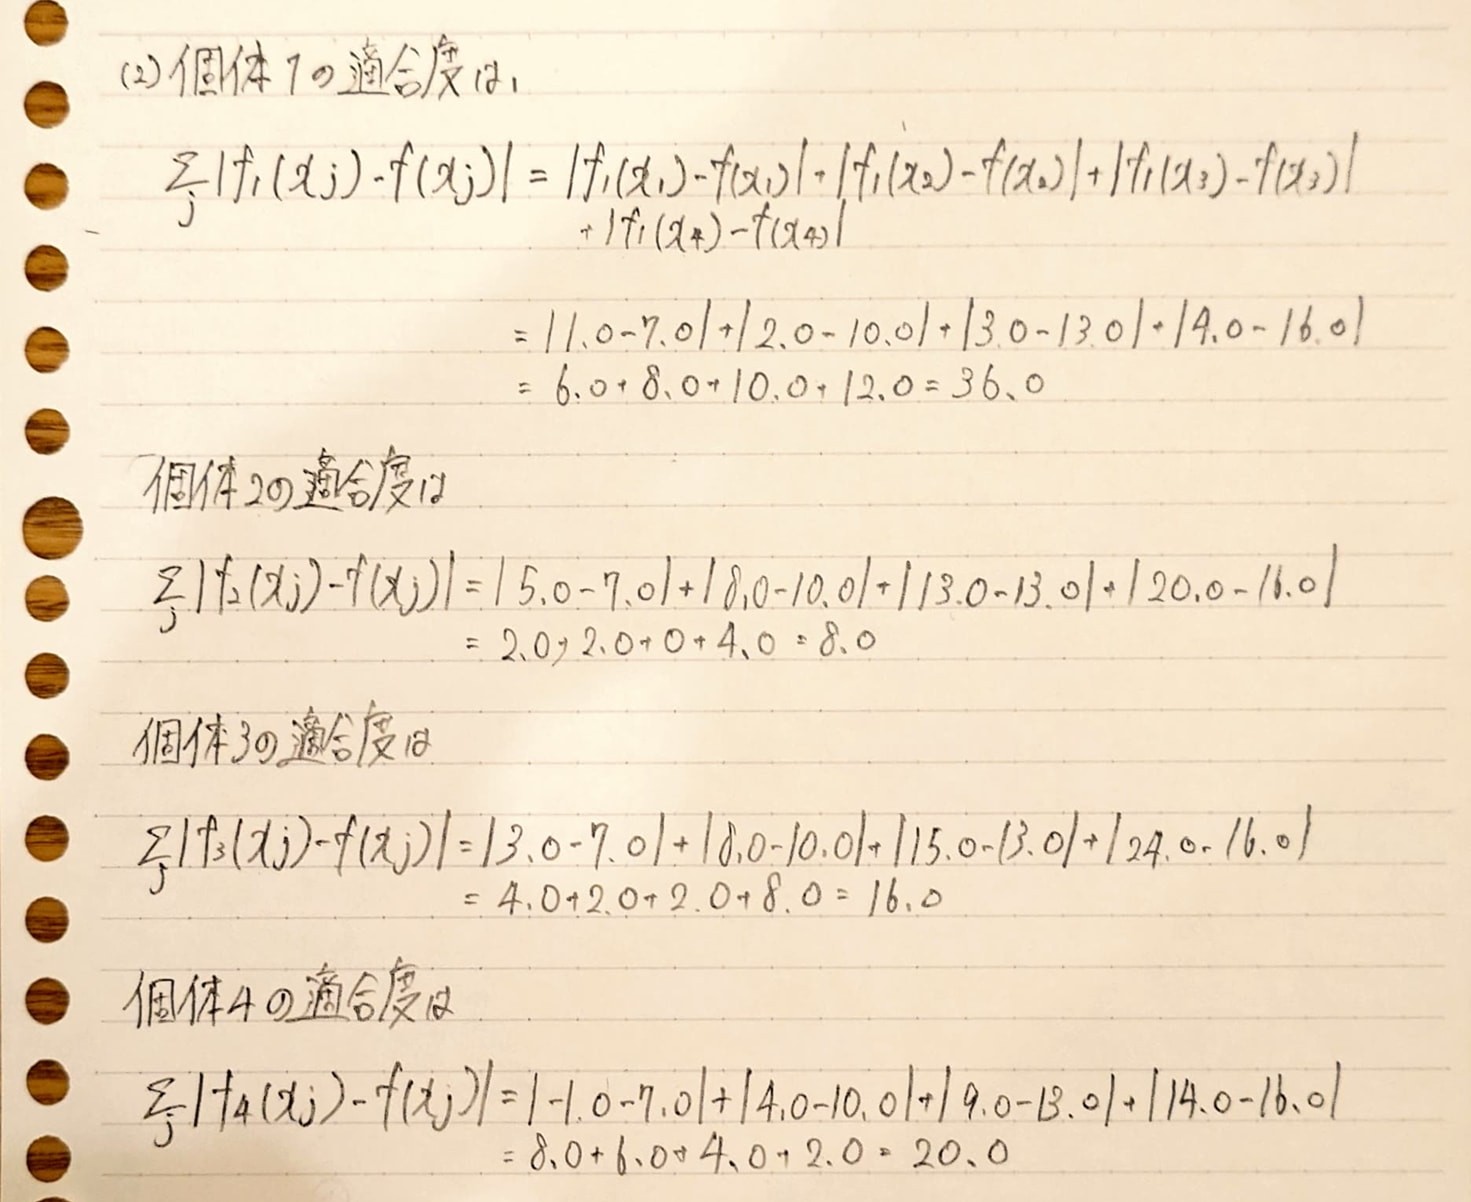 (2) 個体1の適合度は、
Σ_j |f₁(xj) - f(xj)| = |f₁(x₁) - f(x₁)| + |f₁(x₂) - f(x₂)| + |f₁(x₃) - f(x₃)|
+ |f₁(x₄) - f(x₄)|
= |1.0 - 7.0| + |2.0 - 10.0| + |3.0 - 13.0| + |4.0 - 16.0|
= 6.0 + 8.0 + 10.0 + 12.0 = 36.0
個体2の適合度は
Σ_j |f₂(xj) - f(xj)| = |5.0 - 7.0| + |8.0 - 10.0| + |13.0 - 13.0| + |20.0 - 16.0|
= 2.0 + 2.0 + 0 + 4.0 = 8.0
個体3の適合度は
Σ_j |f₃(xj) - f(xj)| = |3.0 - 7.0| + |8.0 - 10.0| + |15.0 - 13.0| + |24.0 - 16.0|
= 4.0 + 2.0 + 2.0 + 8.0 = 16.0
個体4の適合度は
Σ_j |f₄(xj) - f(xj)| = |-1.0 - 7.0| + |4.0 - 10.0| + |9.0 - 13.0| + |14.0 - 16.0|
= 8.0 + 6.0 + 4.0 + 2.0 = 20.0